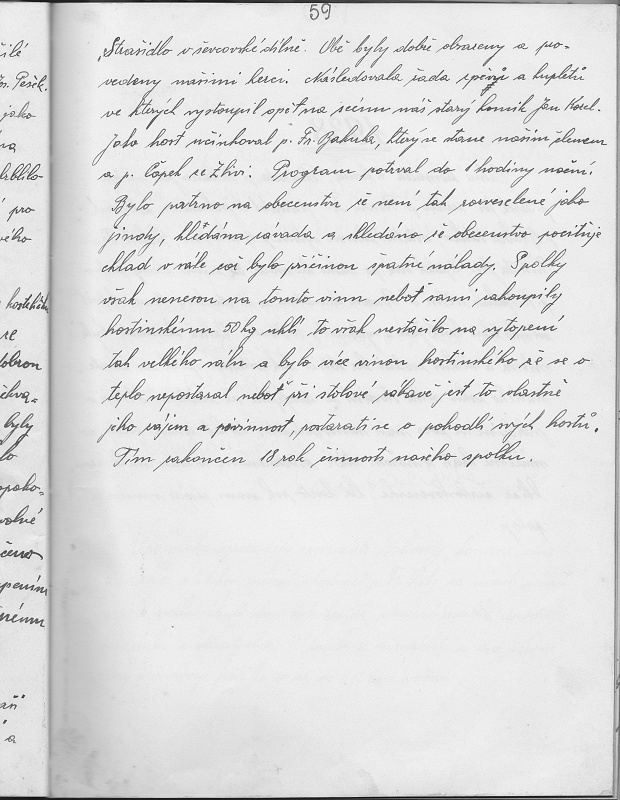 59
„Strašidlo v ševcovské dílně. Obě byly dobře obsazeny a pro-
vedeny našimi herci. Následovala řada zpěvů a kupletů
ve kterých vystoupil opět na scénu náš starý komik Jan Korel.
Jako host účinkoval p. Fr. Bakula, který se stane naším členem
a p. Čápek ze Zlivi. Program potrval do 1 hodiny noční.
Bylo patrno na obecenstvu že není tak rozveselené jako
jindy, hledána závada a shledáno že obecenstvo pociťuje
chlad v sále což bylo příčinou špatné nálady. Spolky
však nenesou na tomto vinu neboť sami zakoupily
hostinskému 50 kg uhlí to však nestačilo na vytopení
tak velkého sálu a bylo více vinou hostinského že se o
teplo nepostaral neboť při stolové zábavě jest to vlastně
jeho zájem a povinnost, postarati se o pohodlí svých hostů.
Tím zakončen 18 rok činnosti našeho spolku.
čilé
Pešek.
jako
na
pro
vého
hostinského
ze
dobrou
byly
lo
spoko-
volné
čeno
a